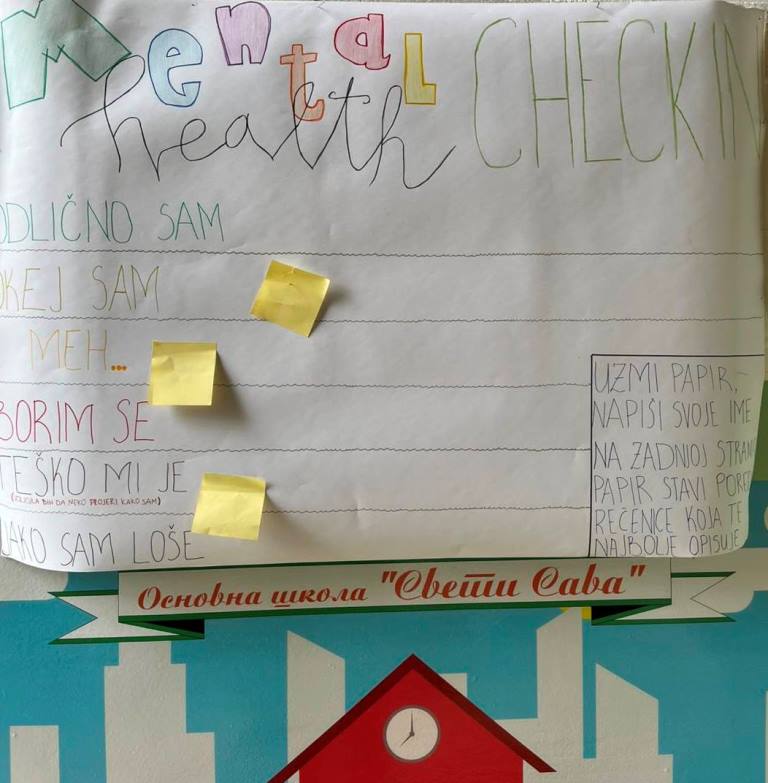 Mental
health CHECKIN
ODLIČNO SAM
OKEJ SAM
MEH...
BORIM SE
TEŠKO MI JE
(VOLJELA BIH DA NEKO PROVJERI KAKO SAM)
JAKO SAM LOŠE
UZMI PAPIR,
NAPIŠI SVOJE IME
NA ZADNJOJ STRANI
PAPIR STAVI PORED
REČENICE KOJA TE
NAJBOLJE OPISUJE
Основна школа "Свети Сава"